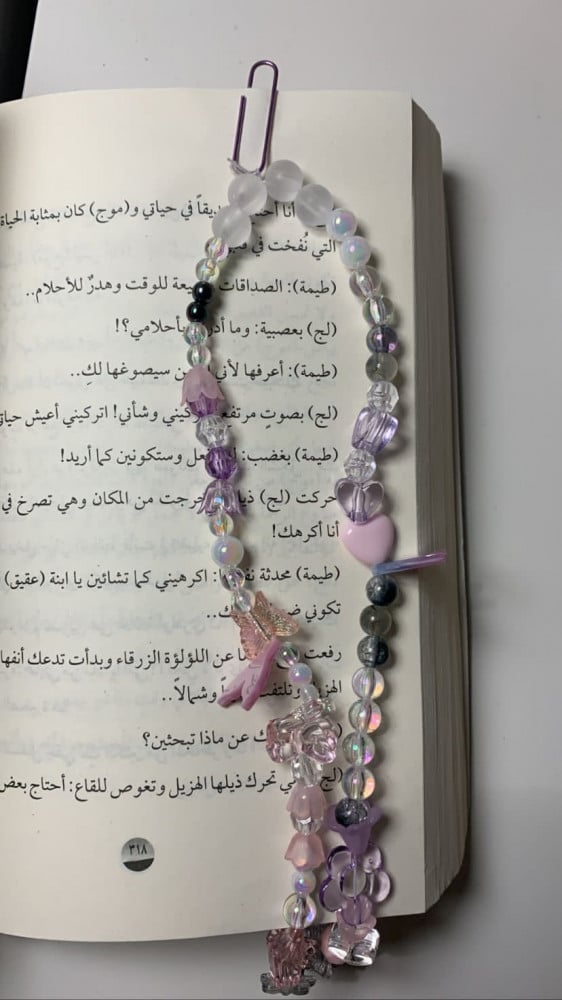 أنا يقاً في حياتي و(موج) كان بمثابة الحياة
التي نُفخت في
(طيمة): الصداقات للوقت وهدرٌ للأحلام..
(لج) بعصبية: وما بأحلامي؟!
(طيمة): أعرفها لأني من سيصوغها لكِ..
(لج) بصوتٍ مرتفع وشأني! اتركيني أعيش
(طيمة) بغضب: وستكونين كما أريد!
حركت (لج) خرجت من المكان وهي تصرخ في
أنا أكرهك!
(طيمة) محدثة اكرهيني كما تشائين يا ابنة (عقيق)
تكوني
رفعت عن اللؤلؤة الزرقاء وبدأت تدعك
وتلتفت وشمالاً..
عن ماذا تبحثين؟
(لج) تحرك ذيلها الهزيل وتغوص للقاع: أحتاج بعض
٣١٨